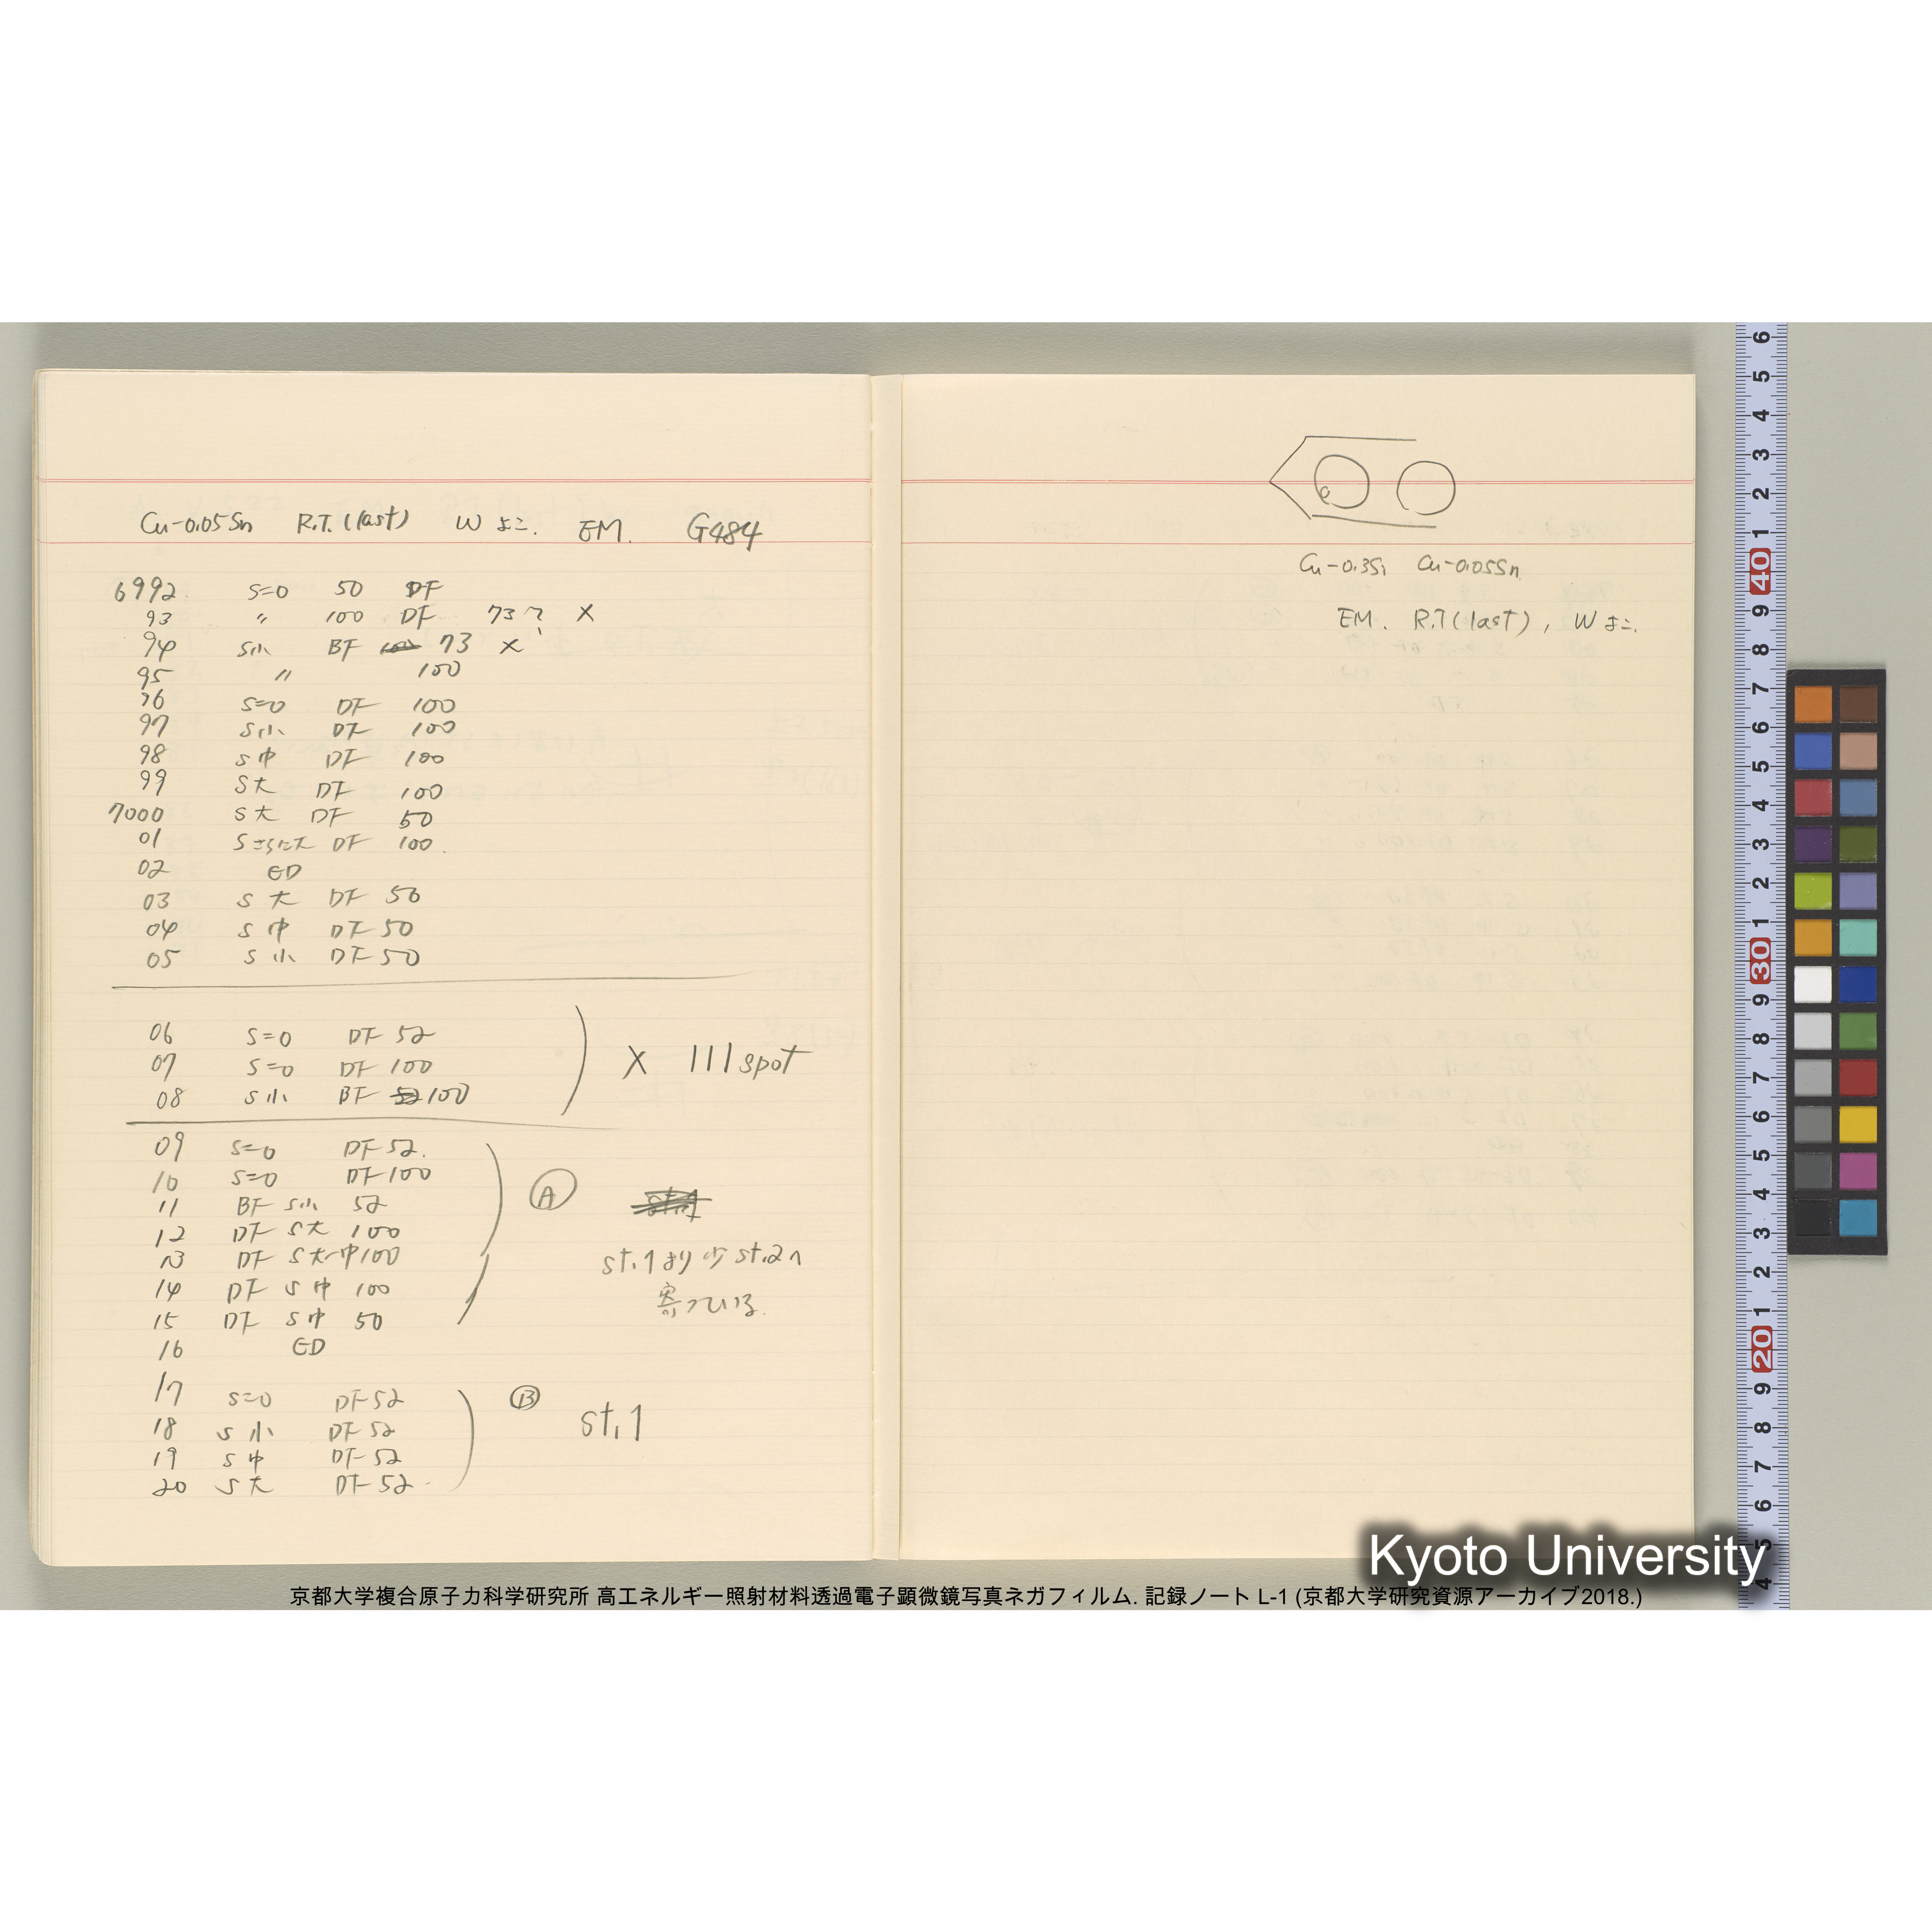 Cu-0.05Sn R.T.(last) W よこ. EM. G484
6992 S=0 50 DF
93 〃 100 DF 73? ×
94 S小 BF 73 ×
95 〃 100
96 S=0 DF 100
97 S小 DF 100
98 S中 DF 100
99 S大 DF 100
7000 S大 DF 50
01 Sさらに大 DF 100.
02 ED
03 S大 DF 50
04 S中 DF 50
05 S小 DF 50
06 S=0 DF 52
07 S=0 DF 100
08 S小 BF 100
× 111 spot
09 S=0 DF 52.
10 S=0 DF 100
11 BF S小 52
12 DF S大 100
13 DF S大〜中 100
14 DF S中 100
15 DF S中 50
16 ED
Ⓐ
st.1より少st.2へ
寄っている.
17 S=0 DF 52
18 S小 DF 52
19 S中 DF 52
20 S大 DF 52.
Ⓑ st.1
Cu-0.3Si Cu-0.05Sn
EM. R.T(last), W よこ.
6 5 4 3 2 1 40 9 8 7 6 5 4 3 2 1 30 9 8 7 6 5 4 3 2 1 20 9 8 7 6 5 4
Kyoto University
京都大学複合原子力科学研究所 高エネルギー照射材料透過電子顕微鏡写真ネガフィルム. 記録ノート L-1 (京都大学研究資源アーカイブ2018.)